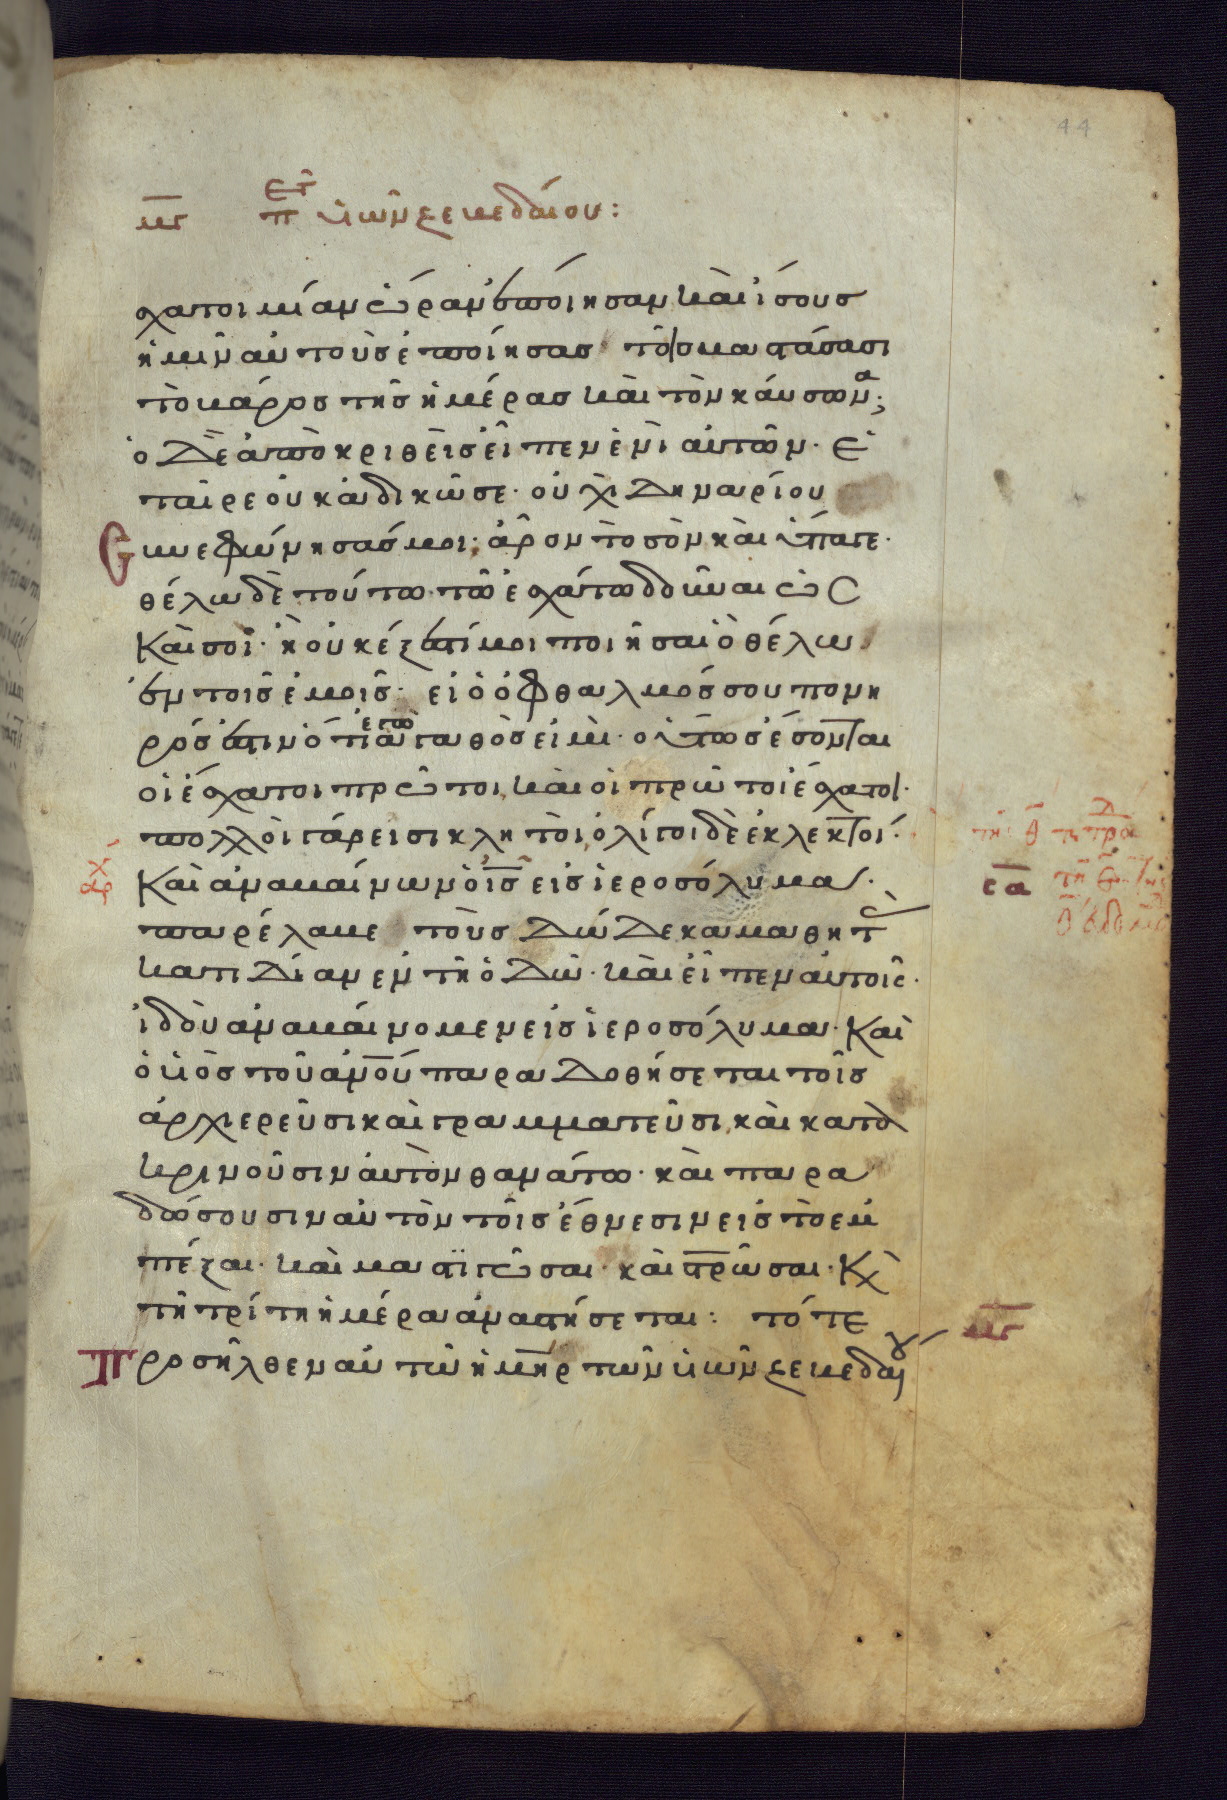 44
μϛ περὶ τ υἱῶν ζεβεδαίου:
χατοι μίαν ὥραν ἐποίησαν καὶ ἴσους
ἡμῖν αὐτοὺς ἐποίησας τοῖς βαστάσασι
τὸ βάρος τῆς ἡμέρας καὶ τὸν καύσωνα;
ὁ δὲ ἀποκριθεὶς εἶπεν ἑνὶ αὐτῶν· ἑ
ταῖρε οὐκ ἀδικῶ σε· οὐχὶ δηναρίου
συνεφώνησάς μοι; ἆρον τὸ σὸν καὶ ὕπαγε·
θέλω δὲ τούτω τῶ ἐσχάτω δοῦναι ὡς
καὶ σοί· ἢ οὐκ ἔξεστί μοι ποιῆσαι ὃ θέλω
ἐν τοῖς ἐμοῖς· εἰ ὁ ὀφθαλμός σου πονη
ρός ἐστιν ὅτι ἐγὼ ἀγαθός εἰμι· οὕτως ἔσονται
οἱ ἔσχατοι πρῶτοι, καὶ οἱ πρῶτοι ἔσχατοι·
πολλοὶ γάρ εἰσι κλητοὶ, ὀλίγοι δὲ ἐκλεκτοί·
ἀρχ Καὶ ἀναβαίνων ὁ ις εἰς ἱεροσόλυμα·
σα
παρέλαβε τοὺς δώδεκα μαθητὰς
κατιδίαν ἐν τῆ ὁδῶ· καὶ εἶπεν αὐτοῖς·
ἰδοὺ ἀναβαίνομεν εἰς ἱεροσόλυμα· καὶ
ὁ υἱὸς τοῦ ανου παραδοθήσεται τοῖς
ἀρχιερεῦσι καὶ γραμματεῦσι, καὶ κατα
κρινοῦσιν αὐτὸν θανάτω· καὶ παρα
δώσουσιν αὐτὸν τοῖς ἔθνεσιν εἰς τὸ ἐμ
παίξαι· καὶ μαστιγῶσαι· καὶ στρῶσαι· κ
τῆ τρίτη ἡμέρα ἀναστήσεται: τότε
μϛ
Προσῆλθεν αὐτῶ ἡ μηρ τῶν υἱῶν ζεβεδαίου